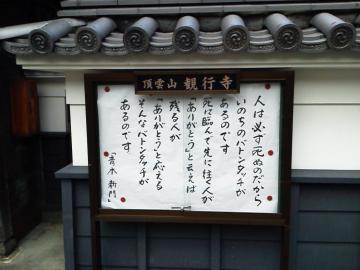 頂雲山 観行寺
人は必ず死ぬのだから
いのちのバトンタッチが
あるのです
死に臨んで先に往く人が
「ありがとう」と云えば
残る人が
「ありがとう」と応える
そんなバトンタッチが
あるのです
「青木新門」